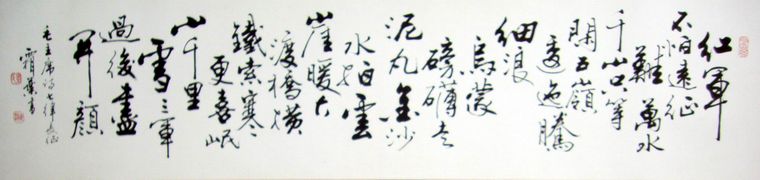 紅軍
不怕遠征
難萬水
千山只等
閒五嶺
逶迤騰
細浪
烏蒙
磅礴走
泥丸金沙
水拍雲
崖暖大
渡橋橫
鐵索寒
更喜岷
山千里
雪三軍
過後盡
開顏
毛主席詩七律長征
霜葉書